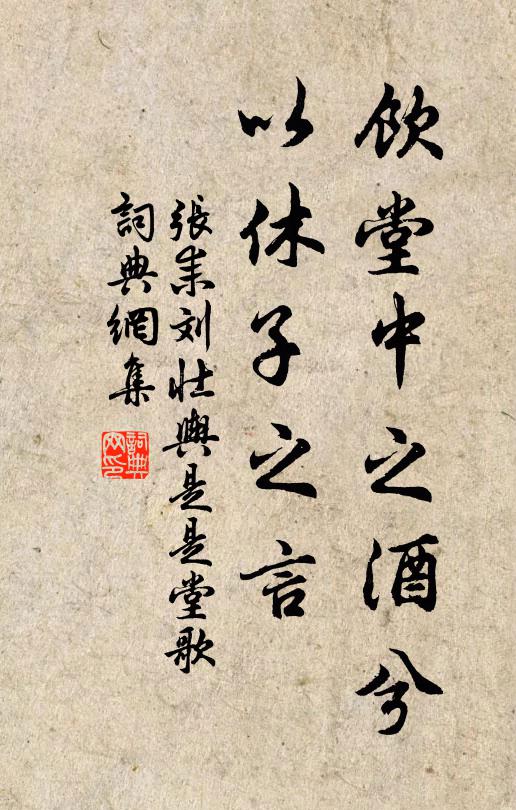 飲堂中之酒兮
以休子之言
張耒刘壮輿是是堂歌
詞典網集
詞典网印